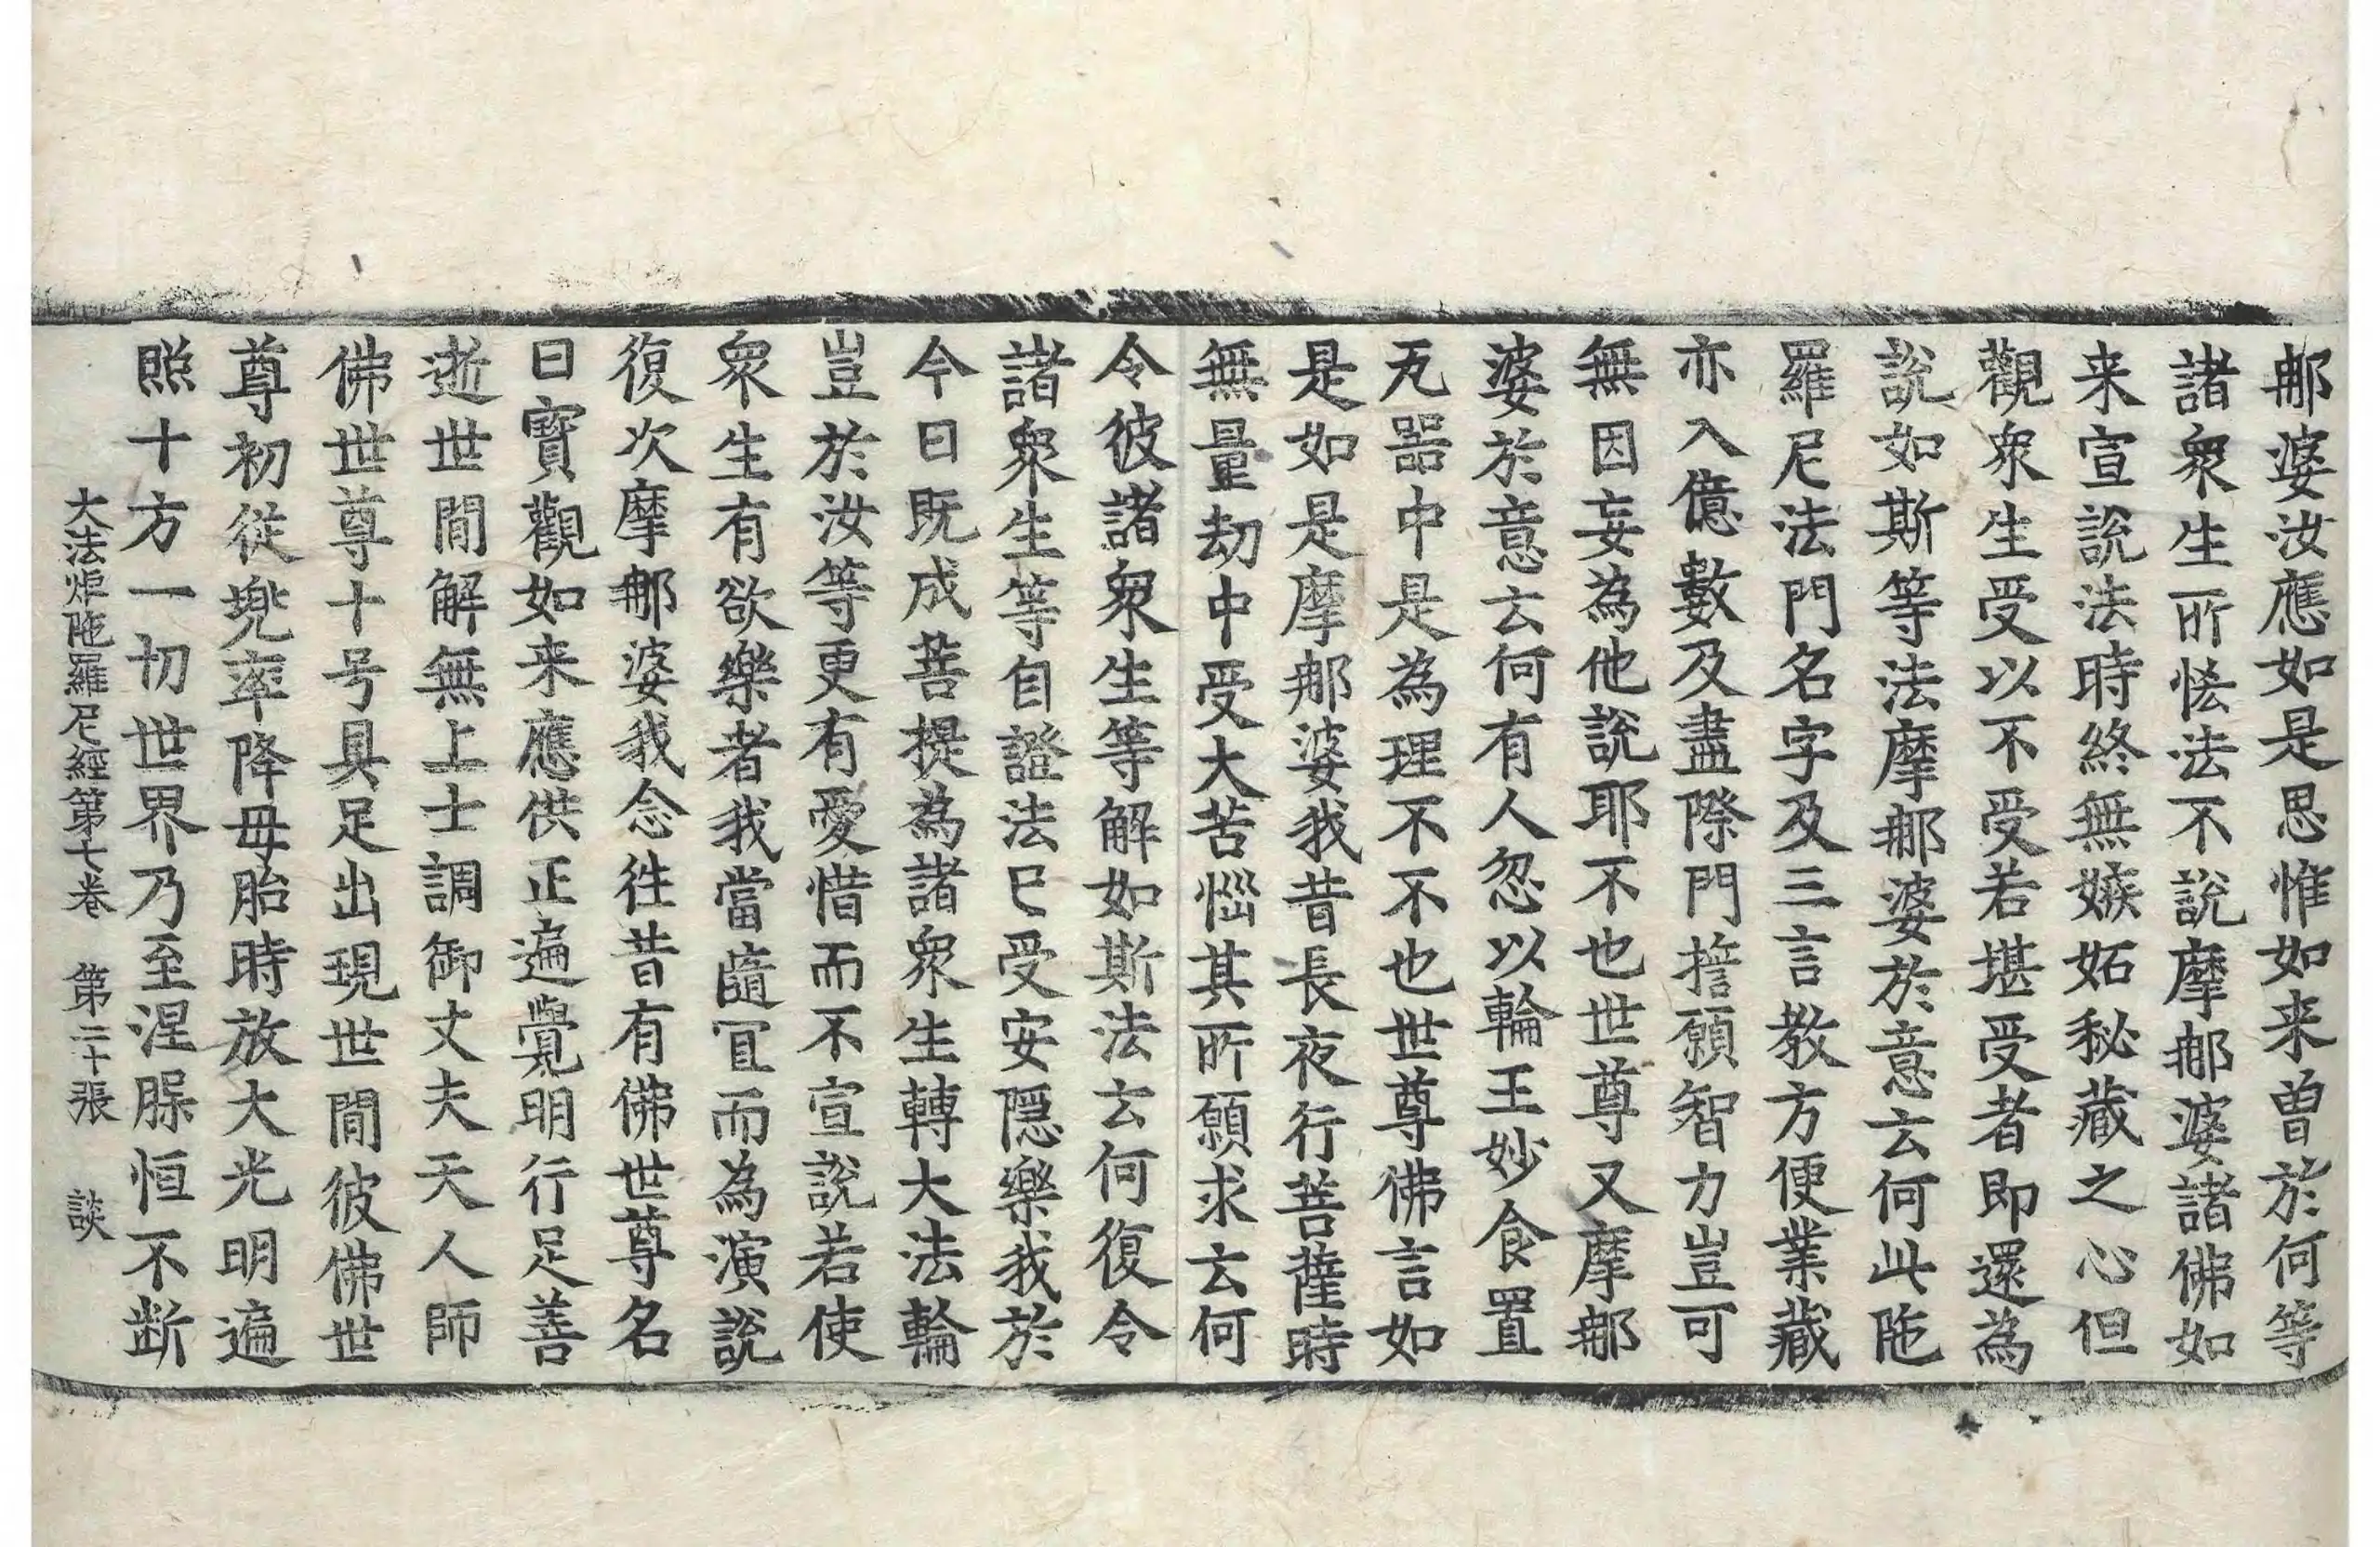 那婆汝應如是思惟如来曽於何等
諸衆生所恡法不說摩那婆諸佛如
来宣說法時終無嫉妬秘藏之心但
觀衆生受以不受若堪受者即還為
說如斯等法摩那婆於意云何此陁
羅尼法門名字及三言教方便業藏
亦入億數及盡際門擔願智力豈可
無因妄為他說耶不也世尊又摩那
婆於意云何有人忽以輪王妙食置
旡噐中是為理不不也世尊佛言如
是如是摩那婆我昔長夜行菩薩時
無量劫中受大苦惱其所願求云何
令彼諸衆生等解如斯法云何復令
諸衆生等自證法已受安隱樂我於
今日既成菩提為諸衆生轉大法輪
豈於汝等更有愛惜而不宣說若使
衆生有欲樂者我當隨冝而為演說
復次摩那婆我念往昔有佛世尊名
曰寳觀如来應供正遍覺明行足善
逝世間解無上士調御丈夫天人師
佛世尊十号具足出現世間彼佛世
尊初從兠率降母胎時放大光明遍
照十方一切世界乃至涅脲恒不断
大法炬陁羅尼經第七卷 第二十張 談